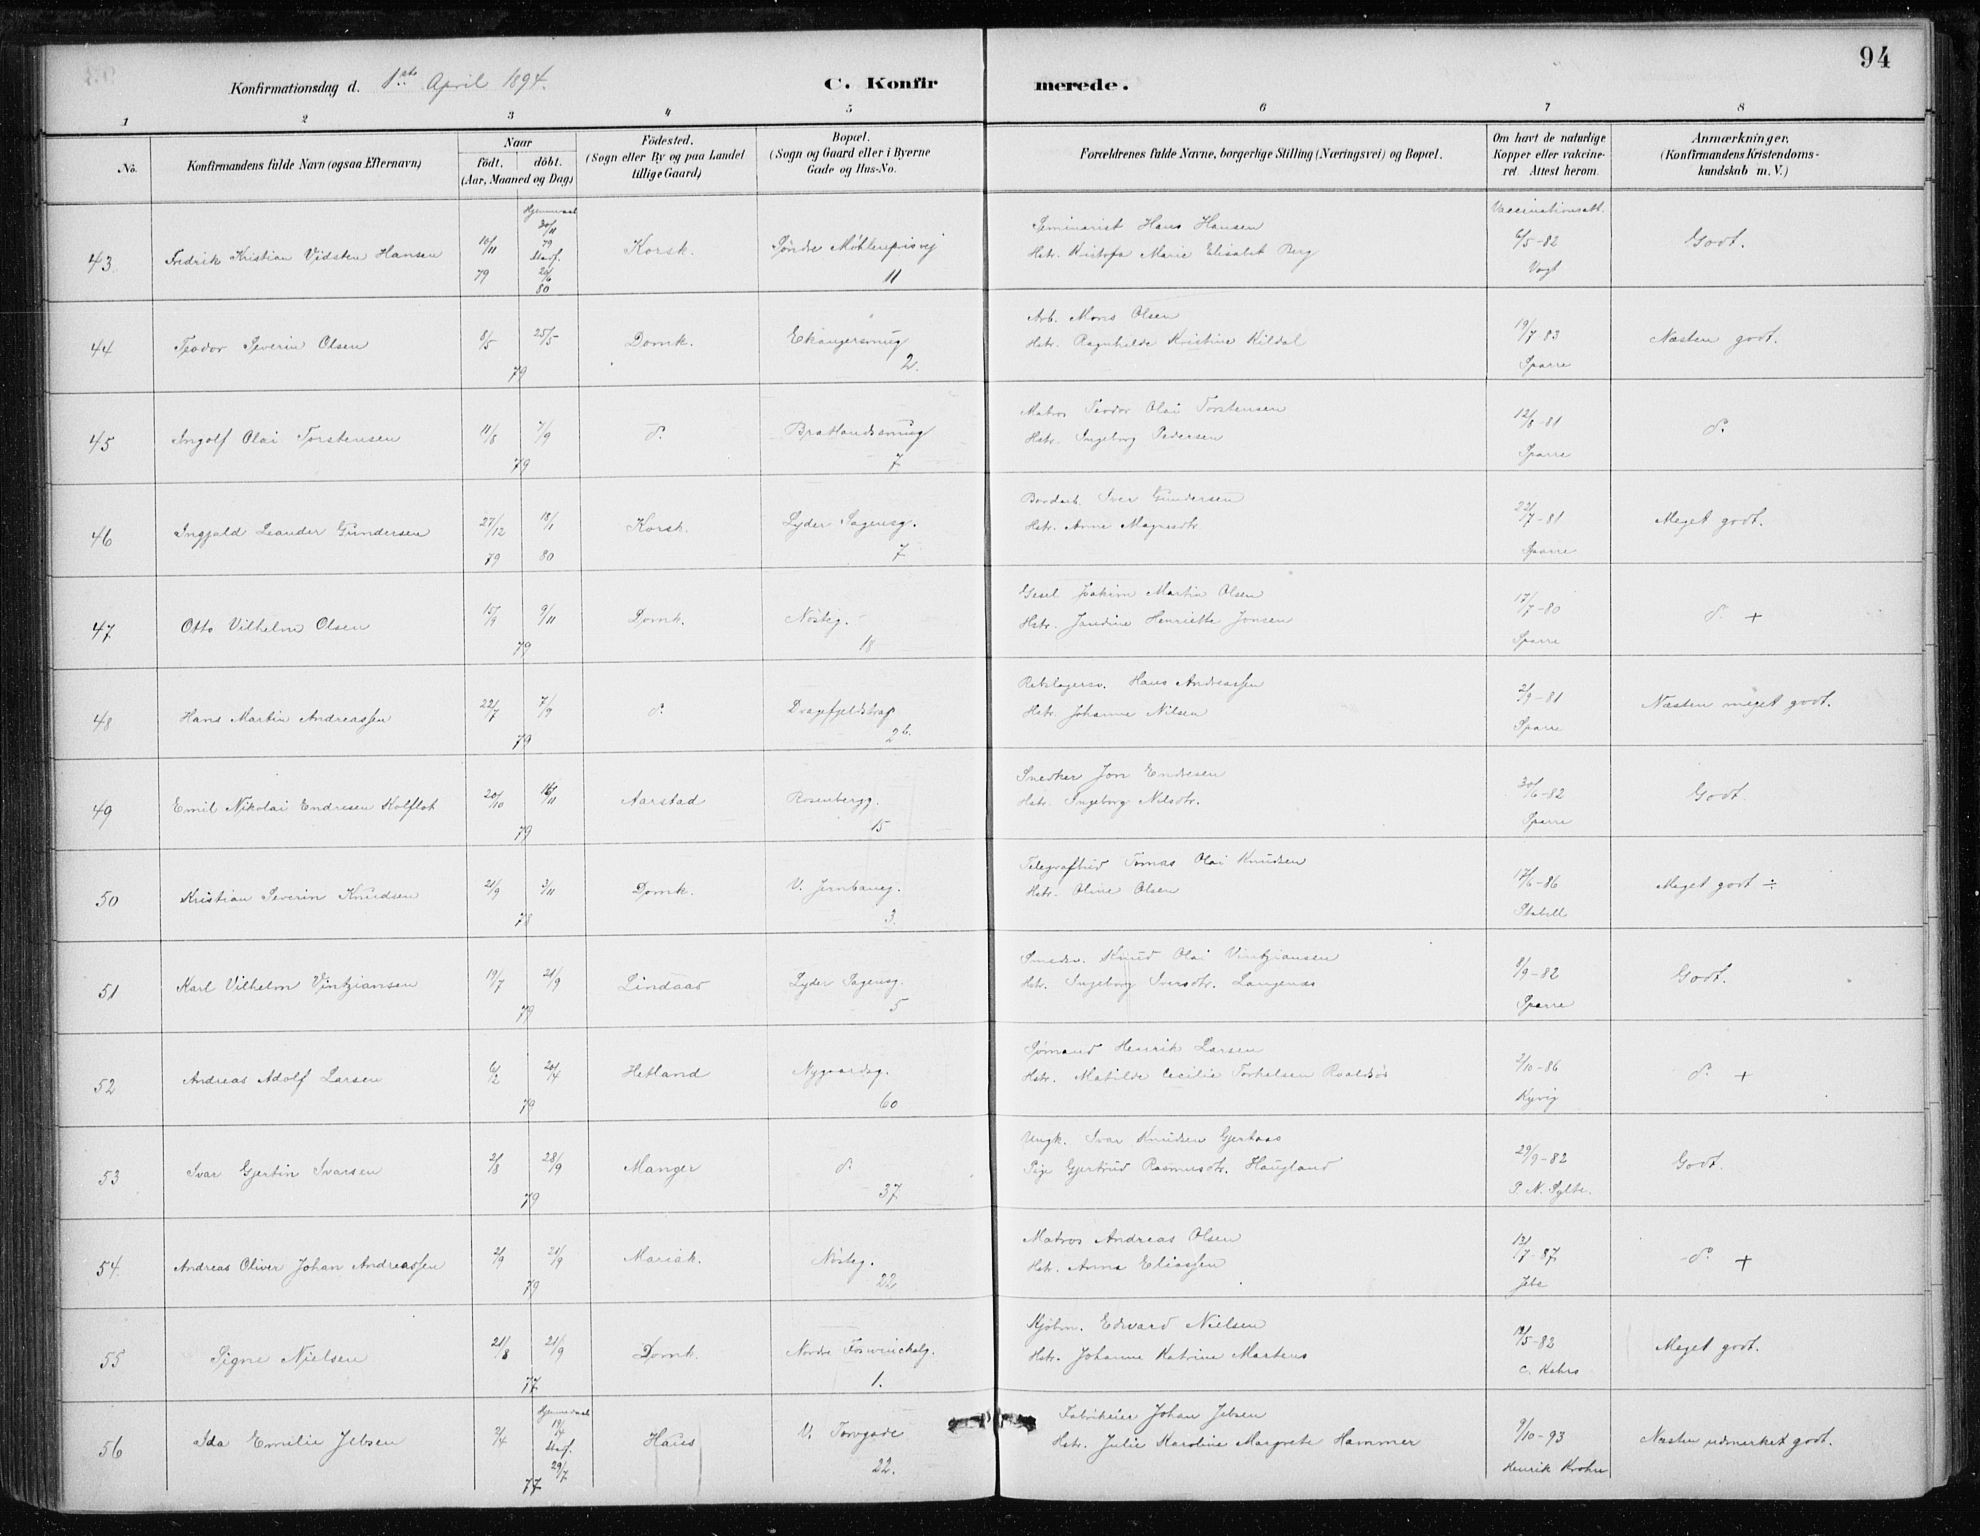 94
Konfirmationsdag d. 1ste April 1894.
C. Konfirmerede.
1 2 3 4 5 6 7 8
No.
Konfirmandens fulde Navn (ogsaa Efternavn)
Naar
födt. döbt.
(Aar, Maaned og Dag)
Födested.
(Sogn eller By og paa Landet
tillige Gaard)
Bopæl.
(Sogn og Gaard eller i Byerne
Gade og Hus-No.
Forældrenes fulde Navne, borgerlige Stilling (Næringsvei) og Bopæl.
Om havt de naturlige
Kopper eller vakcine-
ret. Attest herom.
Anmærkninger,
(Konfirmandens Kristendoms-
kundskab m. V.)
Hjemmedøbt Vaccinationsatt.
43. Fredrik Kristian Vidsten Hansen 10/11 79 20/11 79 Stadf. 20/6 80 Korsk. Søndre Møhlenprisvej 11
Seminarist Hans Hansen
Hstr. Kristofa Marie Elisabet Berg
6/5-82 Vogt
Godt.
44 Teodor Severin Olsen 8/5 25/5 79 Domk. Ekangersmug 2.
Arb. Mons Olsen
Hstr. Ragnhilde Kristine Kildal
19/7 83 Sparre
Næsten godt.
45 Ingolf Olai Torstensen 11/8 7/9 79 d° Bratlandssmug 7
Matros Teodor Olai Torstensen
Hstr. Ingeborg Pedersen
12/8-81 Sparre
d°
46 Ingjald Leander Gundersen 27/12 79 18/1 80 Korsk. Lyder Sagensg. 7
Bordarb. Iver Gundersen
Hstr. Anne Magnesdtr.
22/7-81 Sparre
Meget godt.
47 Otto Vilhelm Olsen 15/9 9/11 79 Domk. Nøsteg. 18
Gjesel Joakim Martin Olsen
Hstr. Jandine Henriette Jonsen
17/7-80 Sparre
d° +
48 Hans Martin Andreassen 22/7 7/9 79 d° Dragefjeldstrap 2b.
Rebslagersv. Hans Andreassen
Hstr. Johanne Nilsen
2/9-81 Sparre
Næsten meget godt.
49 Emil Nikolai Endresen Kolflot 20/10 16/11 79 Aarstad Rosenbergg. 15
Snedker Jon Endresen
Hstr. Ingeborg Nilsdtr.
30/6-82 Sparre
Godt
50 Kristian Severin Knudsen 21/9 3/11 78 Domk. V. Jernbaneg. 3.
Telegrafbud Tomas Olai Knudsen
Hstr. Oline Olsen
17/6-86 Stabell
Meget godt ÷
51 Karl Vilhelm Vintjiansen 19/7 21/9 79 Lindaas Lyder Sagensg. 5
Smedsv. Knud Olai Vintjiansen
Hstr. Ingeborg Iversdtr. Langenæs
8/9-82 Sparre
Godt.
52 Andreas Adolf Larsen 6/2 20/4 79 Hetland Nygaardsg. 60
Sømand Henrik Larsen
Hstr. Matilde Cecilie Torkelsen Roaldsøs
2/10-86 Kyvig
d° +
53 Ivar Gjertin Ivarsen 2/8 28/9 79 Manger d° 37
Ungk. Ivar Knudsen Gjertaas
Pige Gjertrud Rasmusdtr. Haugland
29/9-82 P. N. Sylte.
Godt.
54 Andreas Oliver Johan Andreassen 2/9 21/9 79 Mariak. Nøsteg. 22
Matros Andreas Olsen
Hstr. Anna Eliassen
13/7-87 Jebe
d° +
55 Signe Nielsen 21/8 21/9 77 Domk. Nordre Foswinckelg. 1.
Kjøbm. Edvard Nielsen
Hstr. Johanne Katrine Martens
19/5-82 C. Kahrs
Meget godt.
56 Ida Emilie Jebsen 2/4 Hjemmedøbt 19/4 Stadf. 29/7 77 Haus V. Torvgade 22.
Fabrikeier Johan Jebsen
Hstr. Julie Karoline Margrete Hammer
9/10-93 Henrik Krohn
Næsten udmerket godt.